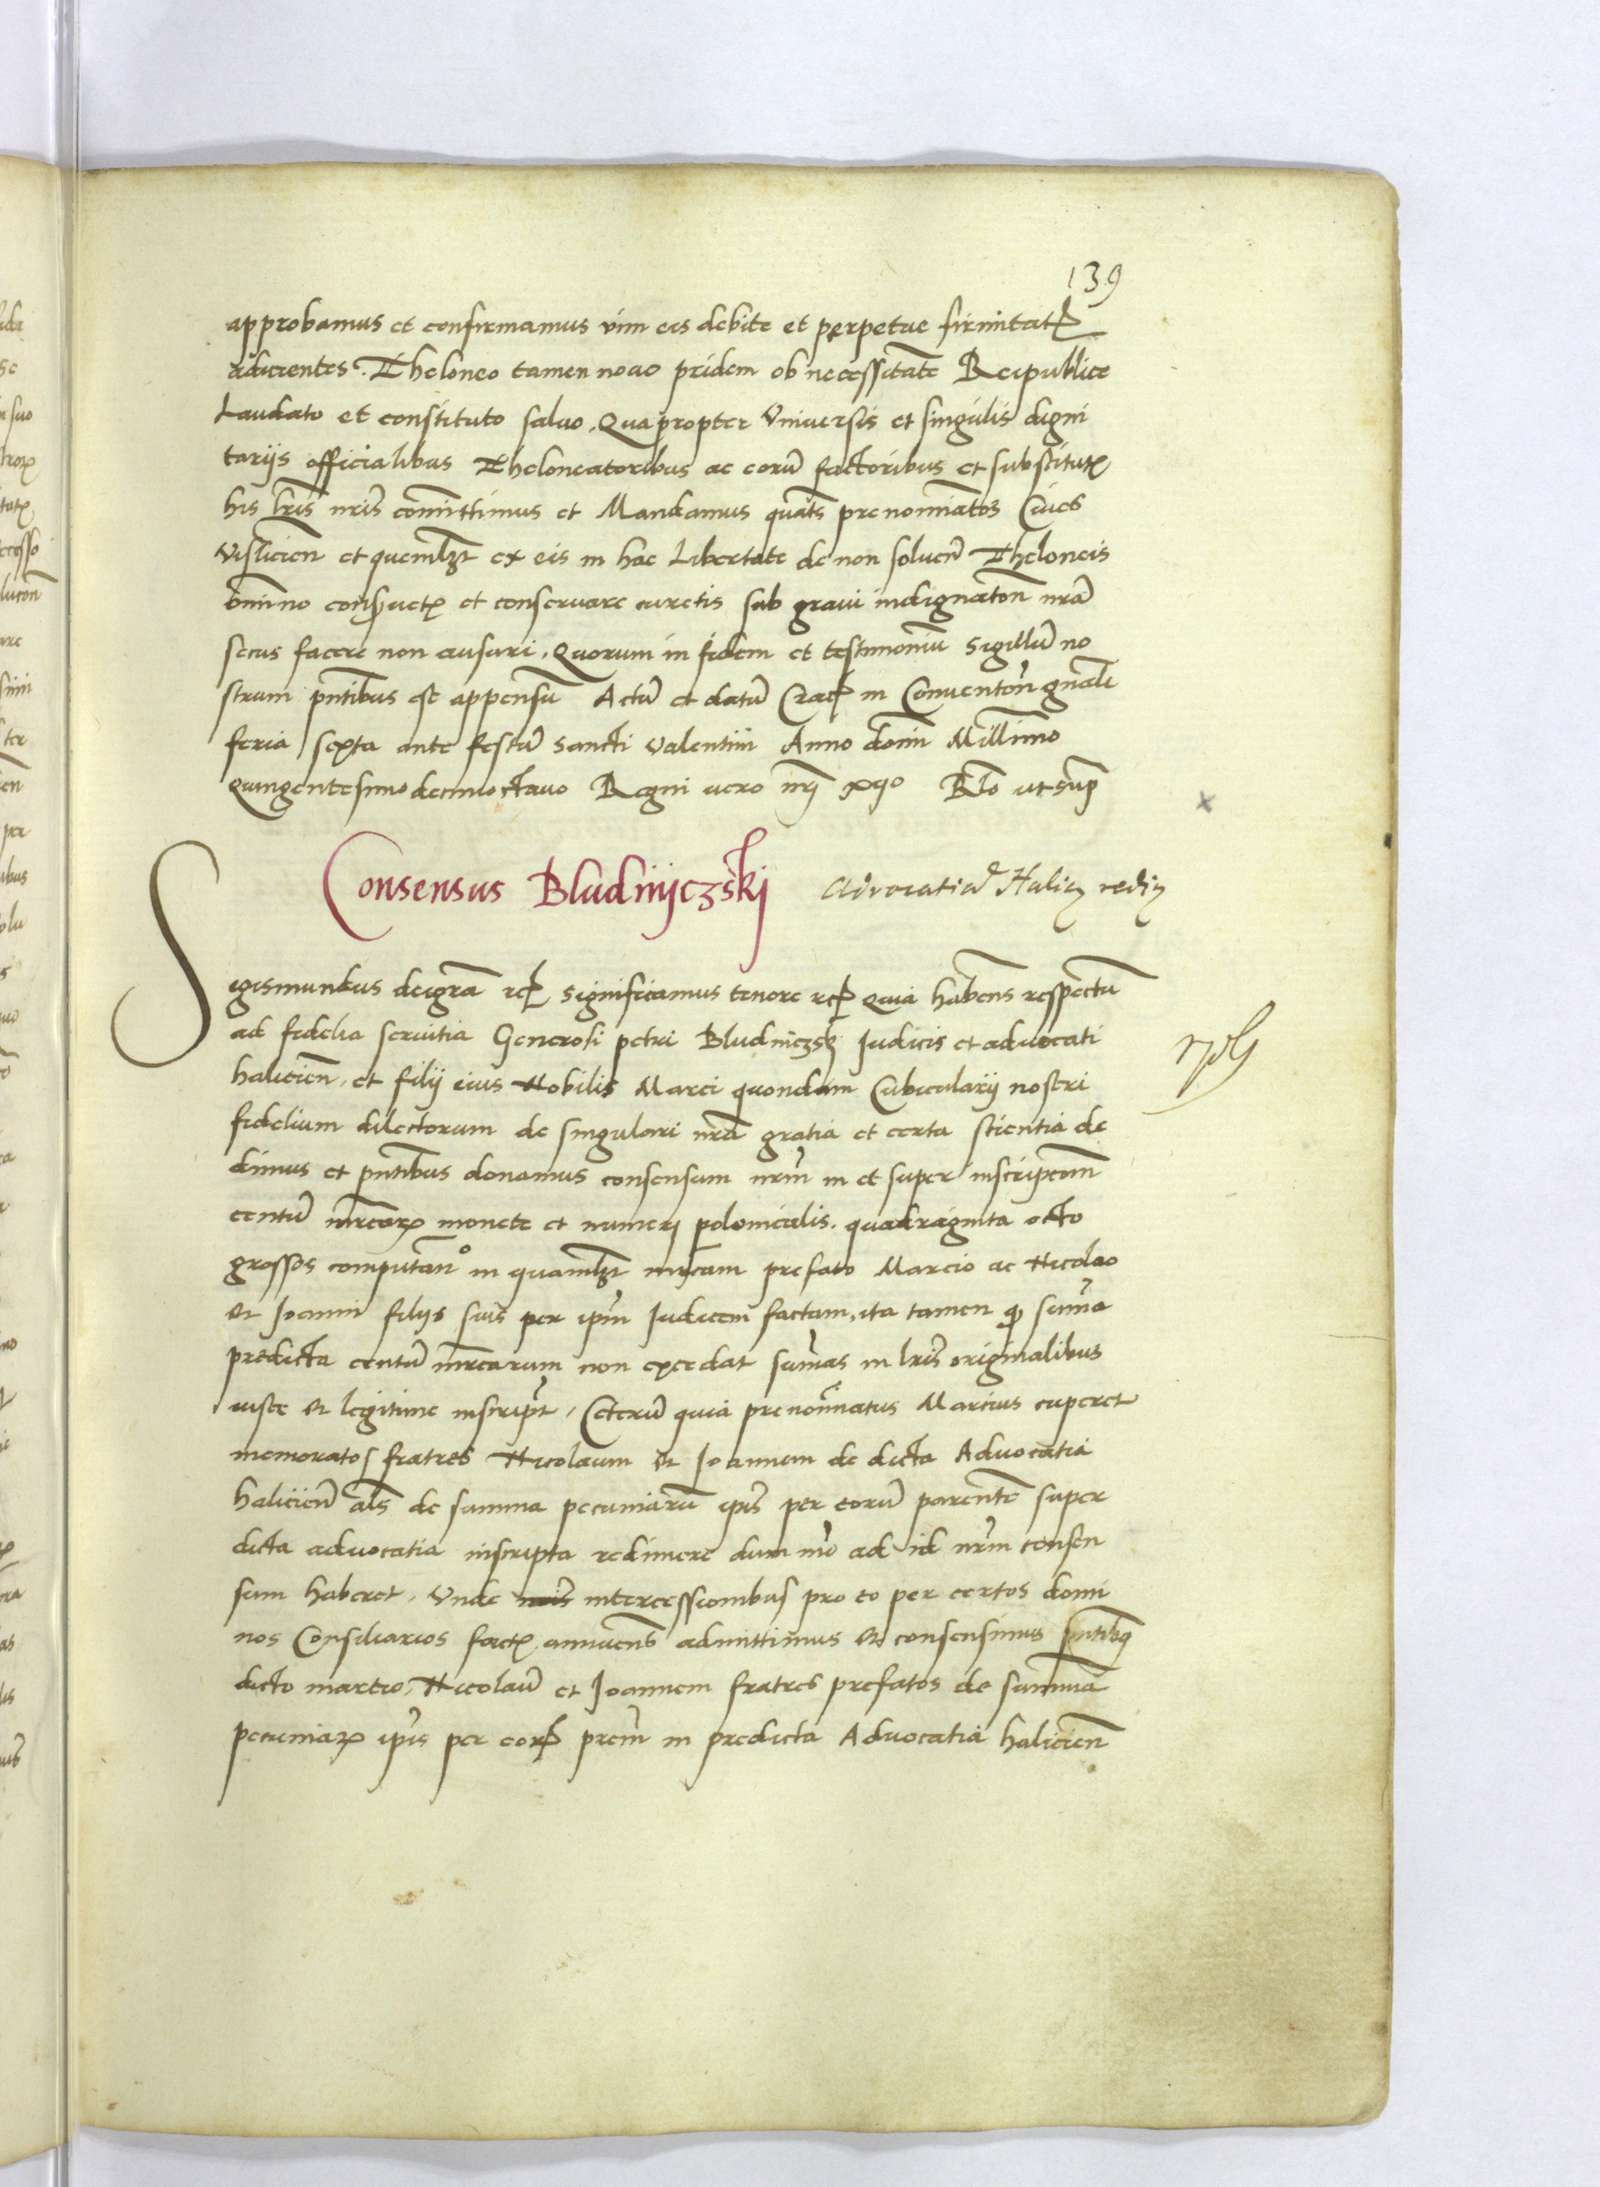 139
approbamus et confirmamus vim eis debite et perpetue firmitatꝭ
adicientes. Theloneo tamen novo pridem ob necessitatē Reipublice
Laudato et constituto salvo. Quapropter Vniversis et singulis digni
tariis officialibus Theloneatoribus ac eorū factoribus et substitutꝭ
his lr̄is nr̄is com̄ittimus et Mandamus quat̄s prenominatos Cives
vislicien̄ et queml̄ꝫt ex eis in hac Libertate de non solven̄ Theloneis
om̄ino conservetꝭ et conservare curetis sub gravi indignaton̄ nr̄a
secus facere non ausuri. Quorum in fidem et testimoniū sigillū no
strum pn̄tibus est appensū Actū et datū Crac̄ in Conventon̄ gn̄ali
feria sexta ante festū Sancti Valentini Anno domī Millīmo
Quingentesimo decimoctavo Regni vero nr̄i xiio Rlō ut sup̄
Consensus Bludnyczski Advocatiā Halicz redi
Sigismundus dei gr̄a rcꝭ Significamus tenore rcꝭ Quia habens respectum
ad fidelia servitia Generosi petri Bludniczsky Iudicis et advocati
halicien̄. et filii eius Nobilis Marci quondam Cubicularii nostri
fidelium dilectorum de singulari nr̄a gratia et certa scientia de
dimus et pn̄tibus donamus consensum nr̄m in et super inscriptōm
centū mr̄carꝝ monete et numeri polonicalis. quadraginta octo
grossos computan̄o in quaml̄ꝫt mr̄cam prefato Marcio ac Nicolao
et Joanni filiis suis per ip̄m Iudicem factam. ita tamen qꝫ sum̄a
predicta centū mr̄carum non excedat sum̄as in lr̄is originalibus
iuste et legitime inscript̄. Ceterū quia prenominatus Marcius cuperet
memoratos fratres Nicolaum et Joannem de dicta Advocatia
halicien̄ al̄s de summa pecuniarū ip̄is per eorū parentē super
dicta advocatia inscripta redimere dum mō ad id nr̄m consen
sum haberet. Vnde intercessionibus pro eo per certos domi
nos Consiliarios factꝭ annuen̄s admittimus et consensimus pn̄tibꝫqꝫ
dicto marcio. Nicolaū et Joannem fratres prefatos de summa
pecuniarꝝ ip̄is per eorꝝ prem̄ in predicta Advocatia halicien̄